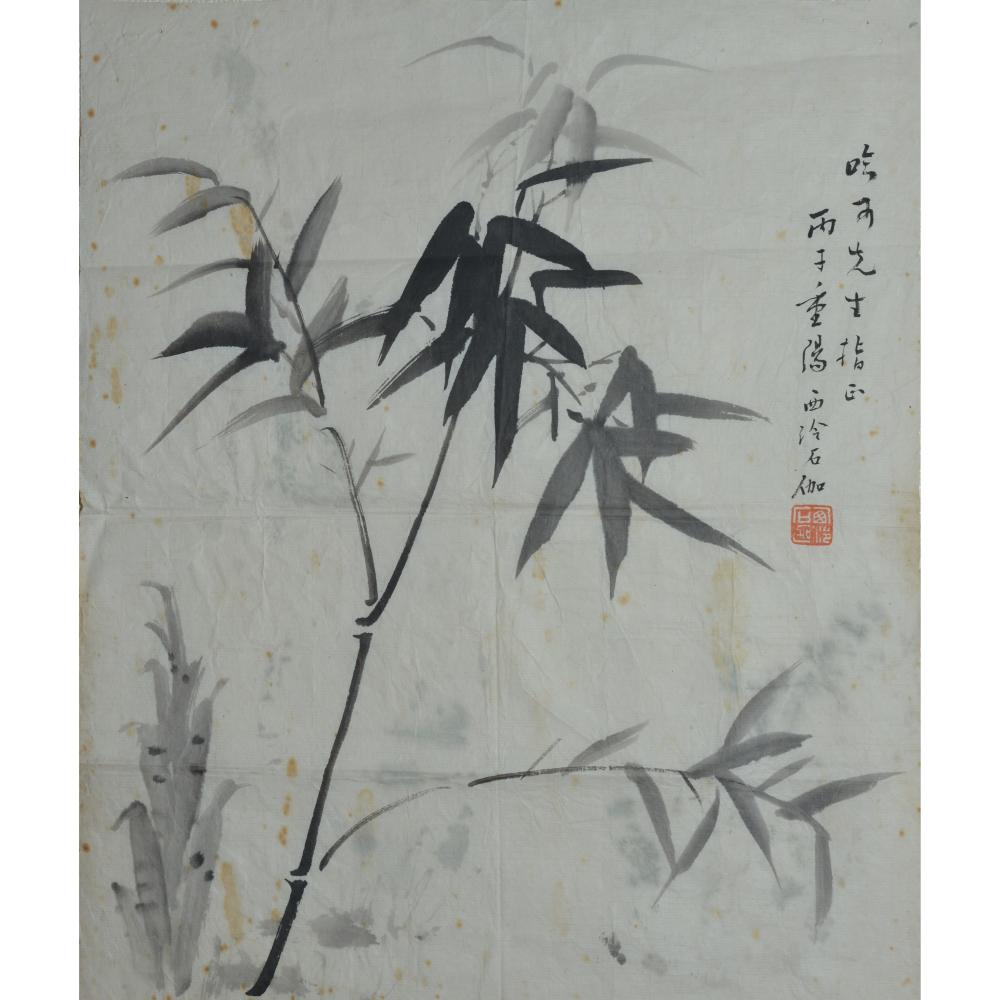 吟可先生指正
丙子重陽西泠石伽
西泠石伽